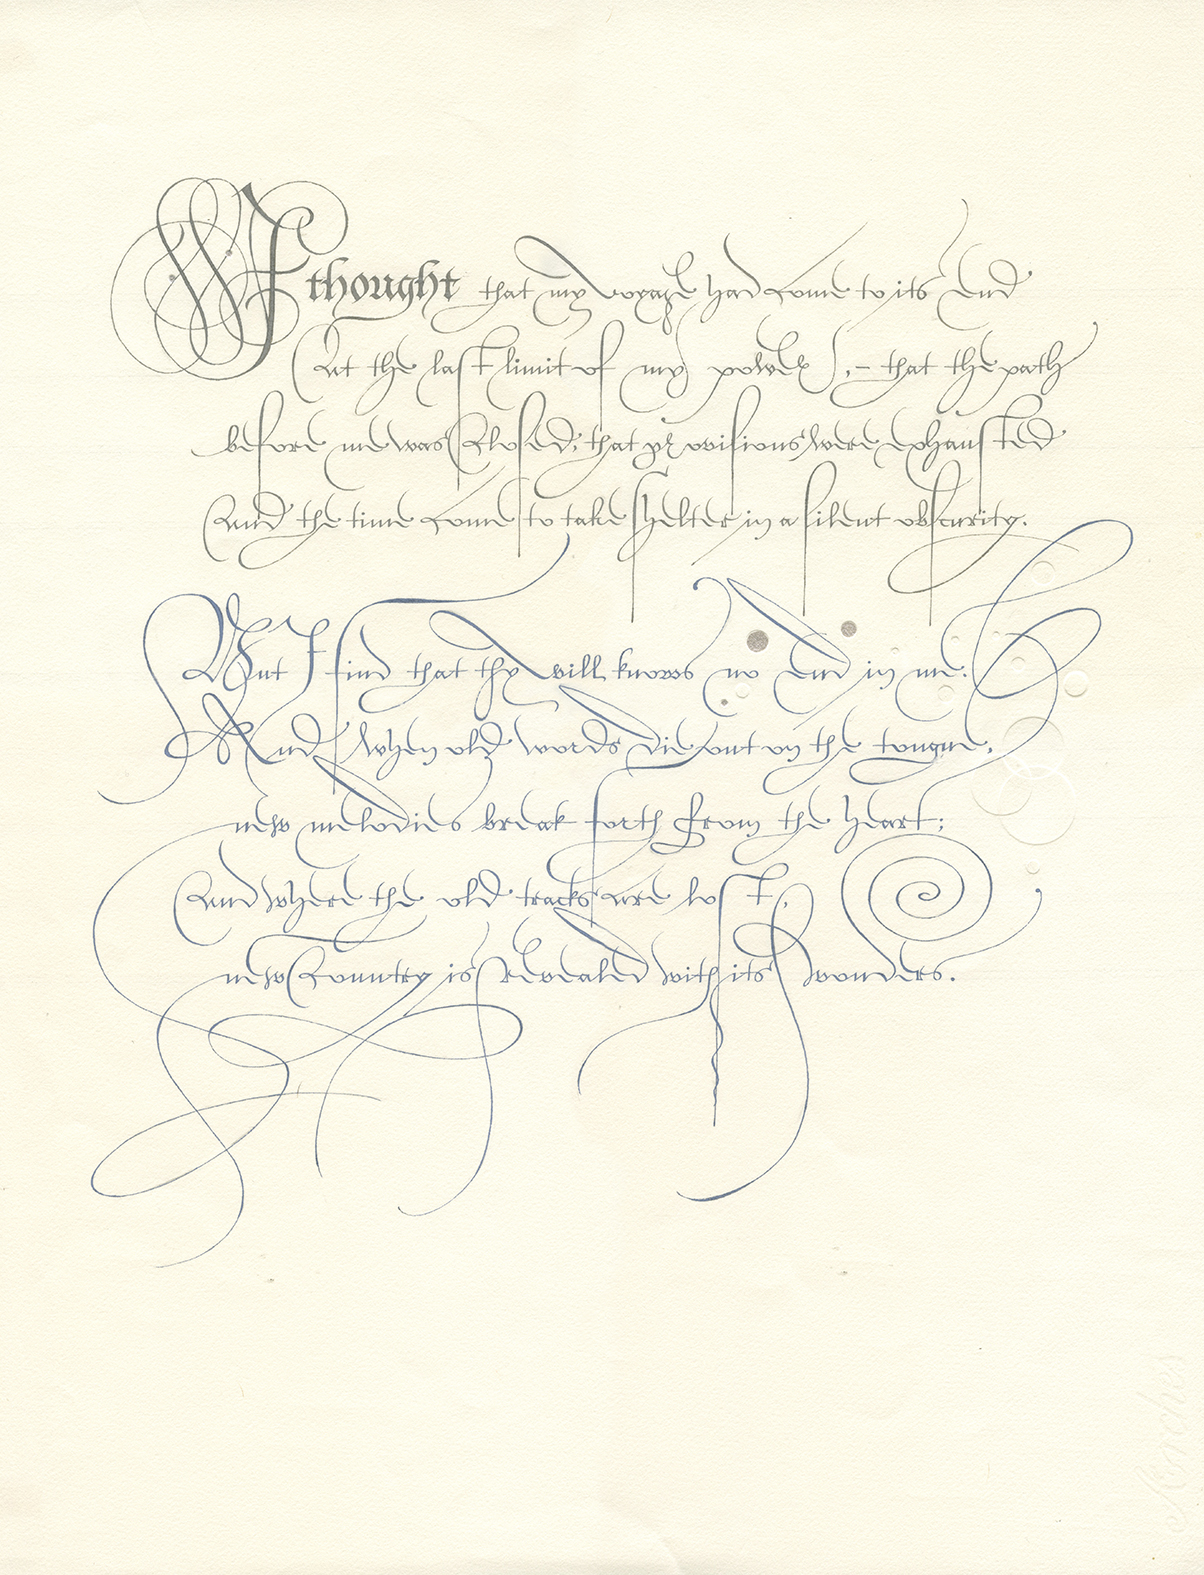 I thought that my voyage had come to its end
At the last limit of my power, – that the path
before me was Closed, that provisions were exhausted
And the time come to take shelter in a silent obscurity.
But I find that thy will knows no end in me:
And when old words die out on the tongue,
new melodies break forth from the heart;
And where the old tracks are lost,
new Country is revealed with its wonders.
Arches